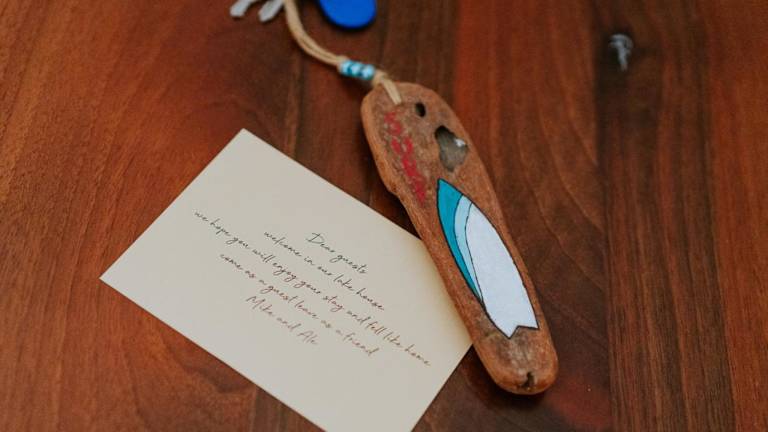 Dear guests
welcome in our lake house
we hope you will enjoy your stay and fell like home
come as a guest leave as a friend
Mike and Ale